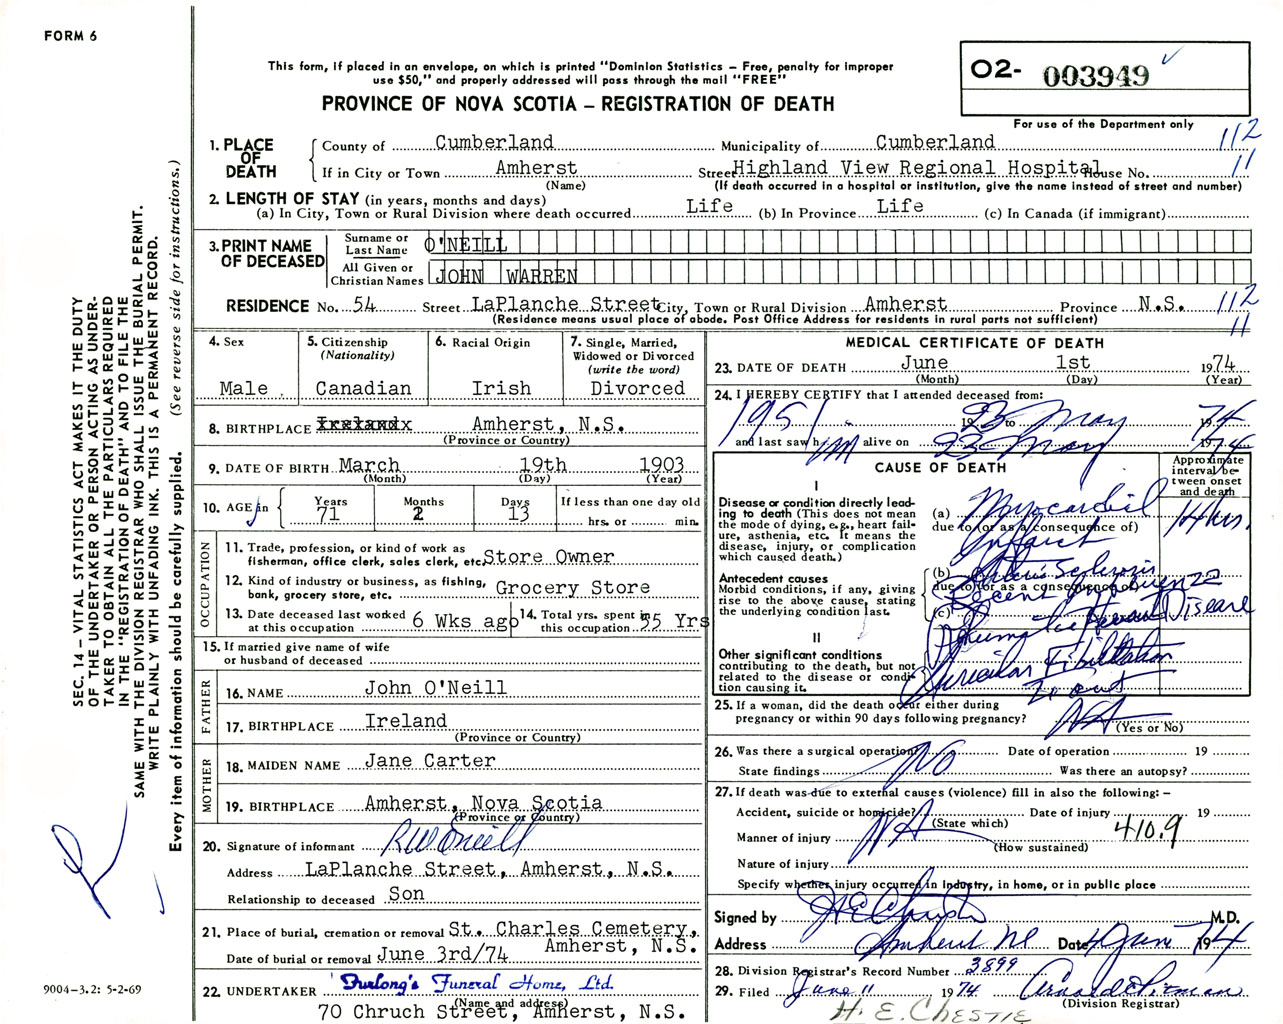 FORM 6
This form, if placed in an envelope, on which is printed "Dominion Statistics – Free, penalty for improper
use $50," and properly addressed will pass through the mail "FREE"
PROVINCE OF NOVA SCOTIA – REGISTRATION OF DEATH
02- 003949
For use of the Department only
1. PLACE OF DEATH
County of Cumberland Municipality of Cumberland 112
If in City or Town Amherst Street Highland View Regional Hospital House No. 11
(Name) (If death occurred in a hospital or institution, give the name instead of street and number)
2. LENGTH OF STAY (in years, months and days)
(a) In City, Town or Rural Division where death occurred Life (b) In Province Life (c) In Canada (if immigrant)
3. PRINT NAME OF DECEASED
Surname or Last Name O'NEILL
All Given or Christian Names JOHN WARREN
RESIDENCE No. 54 Street LaPlanche Street City, Town or Rural Division Amherst Province N.S. 112
(Residence means usual place of abode. Post Office Address for residents in rural parts not sufficient) 11
4. Sex Male
5. Citizenship (Nationality) Canadian
6. Racial Origin Irish
7. Single, Married, Widowed or Divorced (write the word) Divorced
8. BIRTHPLACE Amherst, N.S.
(Province or Country)
9. DATE OF BIRTH March 19th 1903
(Month) (Day) (Year)
10. AGE in Years 71 Months 2 Days 13 If less than one day old hrs. or min.
OCCUPATION
11. Trade, profession, or kind of work as fisherman, office clerk, sales clerk, etc. Store Owner
12. Kind of industry or business, as fishing, bank, grocery store, etc. Grocery Store
13. Date deceased last worked at this occupation 6 Wks ago
14. Total yrs. spent in this occupation 55 Yrs
15. If married give name of wife or husband of deceased
FATHER
16. NAME John O'Neill
17. BIRTHPLACE Ireland
(Province or Country)
MOTHER
18. MAIDEN NAME Jane Carter
19. BIRTHPLACE Amherst, Nova Scotia
(Province or Country)
20. Signature of informant RWOneill
Address LaPlanche Street, Amherst, N.S.
Relationship to deceased Son
21. Place of burial, cremation or removal St. Charles Cemetery,
Amherst, N.S.
Date of burial or removal June 3rd/74
22. UNDERTAKER Furlong's Funeral Home, Ltd.
(Name and address)
70 Chruch Street, Amherst, N.S.
MEDICAL CERTIFICATE OF DEATH
23. DATE OF DEATH June 1st 1974
(Month) (Day) (Year)
24. I HEREBY CERTIFY that I attended deceased from:
1951 19 to 23 May 1974
and last saw him alive on 23 May 1974
CAUSE OF DEATH
Approximate interval between onset and death
I
Disease or condition directly leading to death (This does not mean the mode of dying, e.g., heart failure, asthenia, etc. It means the disease, injury, or complication which caused death.)
(a) Myocardial
due to (or as a consequence of)
Infarct
14 hrs.
Antecedent causes
Morbid conditions, if any, giving rise to the above cause, stating the underlying condition last.
(b) Arterio Sclerosis
due to (or as a consequence of)
Recent
(c)
Rheumatic Heart Disease
II
Other significant conditions
contributing to the death, but not related to the disease or condition causing it.
Auricular Fibrillation
25. If a woman, did the death occur either during pregnancy or within 90 days following pregnancy? NA
(Yes or No)
26. Was there a surgical operation? No Date of operation 19
State findings Was there an autopsy?
27. If death was due to external causes (violence) fill in also the following: –
Accident, suicide or homicide? NA Date of injury 19
(State which)
Manner of injury 410.9
(How sustained)
Nature of injury
Specify whether injury occurred in Industry, in home, or in public place
Signed by M.D.
Address Amherst NS Date 4 June 1974
28. Division Registrar's Record Number 3899
29. Filed June 11 1974
(Division Registrar)
H. E. CHESTIE
SEC. 14 – VITAL STATISTICS ACT MAKES IT THE DUTY
OF THE UNDERTAKER OR PERSON ACTING AS UNDER-
TAKER TO OBTAIN ALL THE PARTICULARS REQUIRED
IN THE "REGISTRATION OF DEATH" AND TO FILE THE
SAME WITH THE DIVISION REGISTRAR WHO SHALL ISSUE THE BURIAL PERMIT.
WRITE PLAINLY WITH UNFADING INK. THIS IS A PERMANENT RECORD.
Every item of information should be carefully supplied. (See reverse side for instructions.)
9004-3.2: 5-2-69